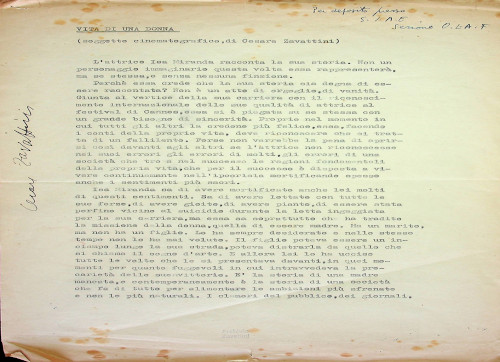 Per deposito presso
S.I.A.E
Sezione O.L.A.F
VITA DI UNA DONNA
(soggetto cinematografico, di Cesare Zavattini)
L'attrice Isa Miranda racconta la sua storia. Non un
personaggio immaginario questa volta essa rappresenterà,
ma se stessa, e senza nessuna finzione.
Perchè essa crede che la sua storia sia degna di es-
sere raccontata? Non è un atto di orgoglio, di vanità.
Giunta al vertice della sua carriera con il riconosci-
mento internazionale delle sue qualità di attrice al
festival di Cannes, essa si è piegata su se stessa con
un grande bisogno di sincerità. Proprio nel momento in
cui tutti gli altri la credono più felice, essa, facendo
i conti della propria vita, deve riconoscere che si trat-
ta di un fallimento. Forse non varrebbe la pena di aprir-
si così davanti agli altri se l'attrice non riconoscesse
nei suoi errori gli errori di molti, gli errori di una
società che tro a nel successo le ragioni fondamentali
della propria vita, che per il successo è disposta a vi-
vere continuamente nell'ipocrisia mortificando spesso
anche i sentimenti più sacri.
Isa Miranda sa di avere mortificato anche lei molti
di questi sentimenti. Sa di avere lottato con tutte le
sue forze, di avere gioito, di avere pianto, di essere stata
perfino vicina al suicidio durante la lotta ingaggiata
per la sua carriera, ma essa sa soprattutto che ha tradito
la missione della donna, quella di essere madre. Ha un marito,
ma non ha un figlio. Lo ha sempre desiderato e nello stesso
tempo non lo ha mai voluto. Il figlio poteva essere un in-
ciampo lungo la sua strada, poteva distrarla da quello che
si chiama il sogno d'arte. E allora lei lo ha ucciso
tutte le volte che le si presentava davanti, in quei mo-
menti per quanto fuggevoli in cui intravvedeva la pre-
carietà delle sue vittorie. E' la storia di una madre
mancata, e contemporaneamente è la storia di una società
che fa di tutto per alimentare le ambizioni più sfrenate
e non le più naturali. I clamori del pubblico, dei giornali.
Cesare Zavattini